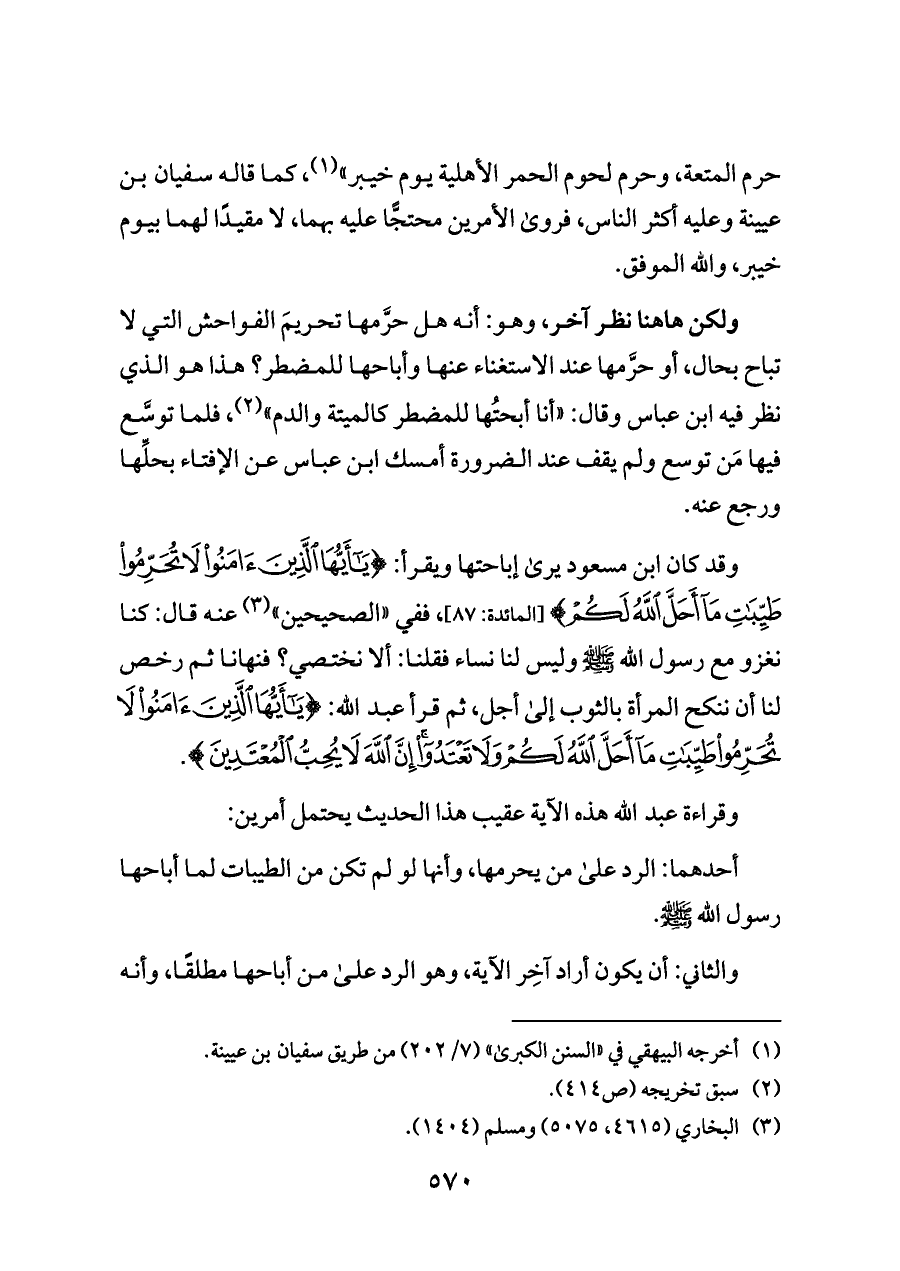 حرم المتعة، وحرم لحوم الحمر الأهلية يوم خيبر»(١)، كما قاله سفيان بن
عيينة وعليه أكثر الناس، فروىٰ الأمرين محتجًّا عليه بهما، لا مقيدًا لهما بيوم
خيبر، والله الموفق.
ولكن هاهنا نظر آخر، وهو: أنه هل حرَّمها تحريمَ الفواحش التي لا
تباح بحال، أو حرَّمها عند الاستغناء عنها وأباحها للمضطر؟ هذا هو الذي
نظر فيه ابن عباس وقال: «أنا أبحتُها للمضطر كالميتة والدم»(٢)، فلما توسَّع
فيها مَن توسع ولم يقف عند الضرورة أمسك ابن عباس عن الإفتاء بحلِّها
ورجع عنه.
وقد كان ابن مسعود يرىٰ إباحتها ويقرأ: ﴿يَٰٓأَيُّهَا ٱلَّذِينَ ءَامَنُوا۟ لَا تُحَرِّمُوا۟
طَيِّبَٰتِ مَآ أَحَلَّ ٱللَّهُ لَكُمْ﴾ [المائدة: ٨٧]، ففي «الصحيحين»(٣) عنه قال: كنا
نغزو مع رسول الله ﷺ وليس لنا نساء فقلنا: ألا نختصي؟ فنهانا ثم رخص
لنا أن ننكح المرأة بالثوب إلىٰ أجل، ثم قرأ عبد الله: ﴿يَٰٓأَيُّهَا ٱلَّذِينَ ءَامَنُوا۟ لَا
تُحَرِّمُوا۟ طَيِّبَٰتِ مَآ أَحَلَّ ٱللَّهُ لَكُمْ وَلَا تَعْتَدُوٓا۟ ۚ إِنَّ ٱللَّهَ لَا يُحِبُّ ٱلْمُعْتَدِينَ﴾.
وقراءة عبد الله هذه الآية عقيب هذا الحديث يحتمل أمرين:
أحدهما: الرد علىٰ من يحرمها، وأنها لو لم تكن من الطيبات لما أباحها
رسول الله ﷺ.
والثاني: أن يكون أراد آخِر الآية، وهو الرد علىٰ من أباحها مطلقًا، وأنه
(١) أخرجه البيهقي في «السنن الكبرىٰ» (٧/ ٢٠٢) من طريق سفيان بن عيينة.
(٢) سبق تخريجه (ص٤١٤).
(٣) البخاري (٤٦١٥، ٥٠٧٥) ومسلم (١٤٠٤).
٥٧٠